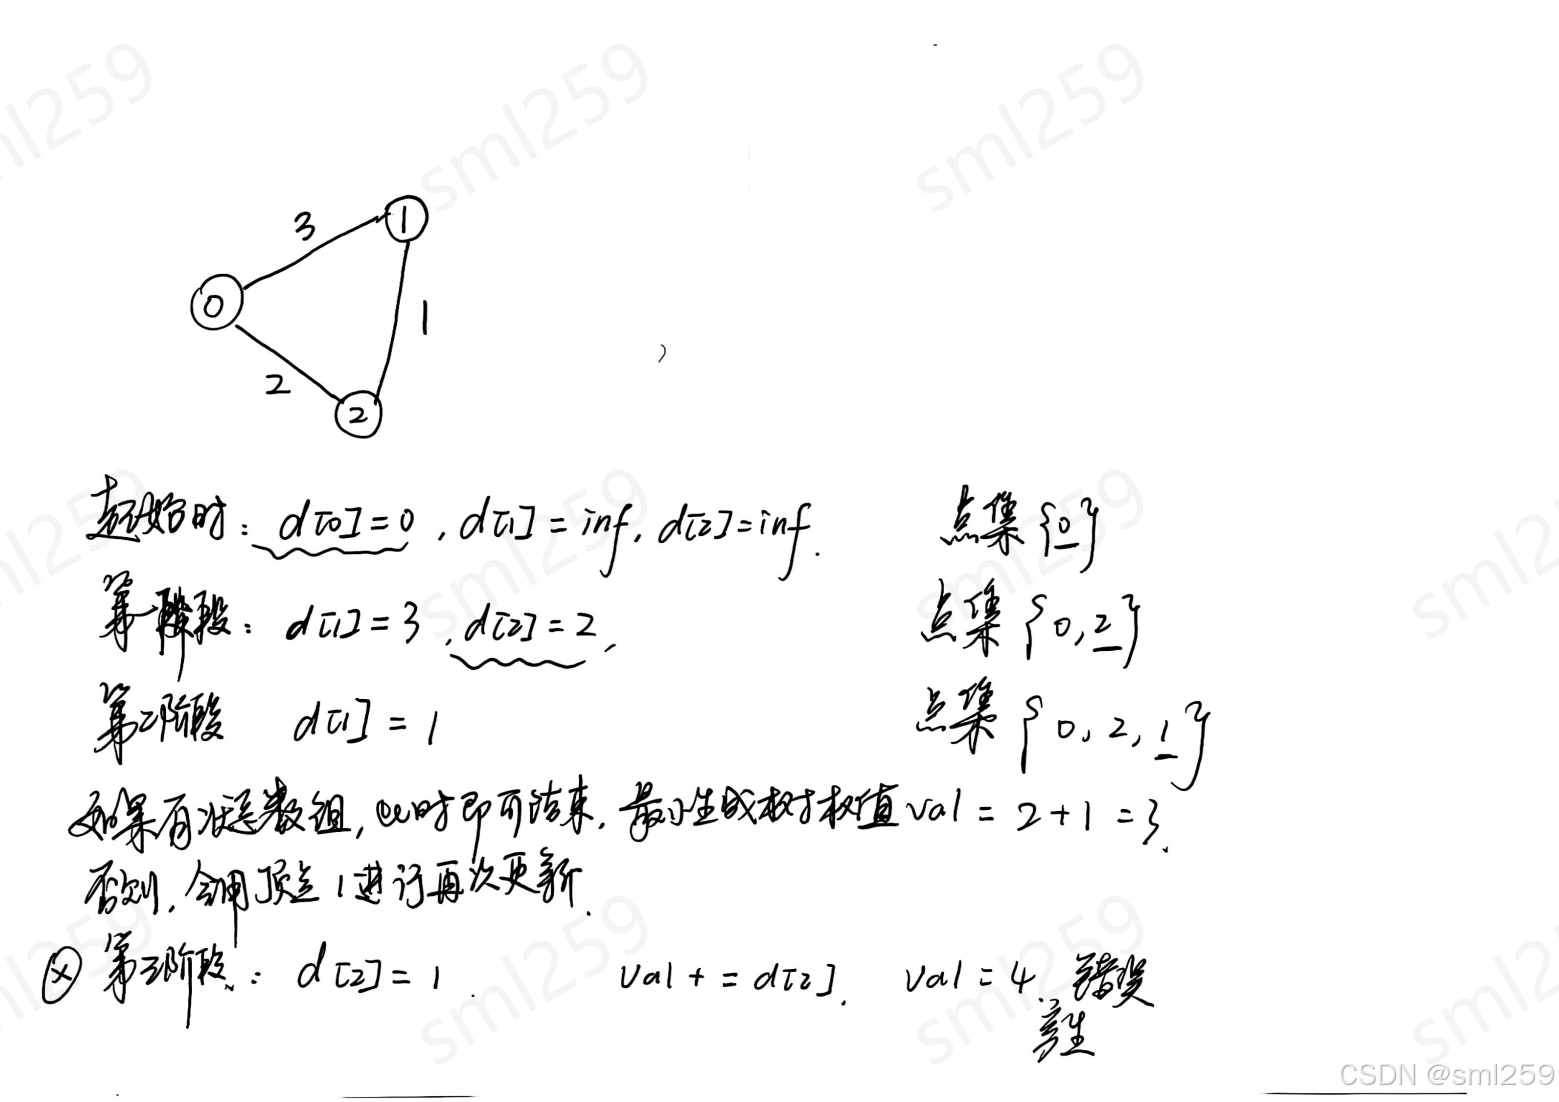 3
1
0
1
2
2
起始时: d[0]=0, d[1]=inf, d[2]=inf. 点集{0}
第一阶段: d[1]=3, d[2]=2, 点集{0,2}
第二阶段 d[1]=1 点集{0,2,1}
如果有状态数组,此时即可结束.最小生成树权值val=2+1=3.
否则,会用顶点1进行再次更新.
× 第三阶段: d[2]=1. val+=d[2]. val=4. 错误
产生
sml259
sml259
sml259
sml259
sml259
sml259
sml259
sml259
sml259
sml259
CSDN @sml259